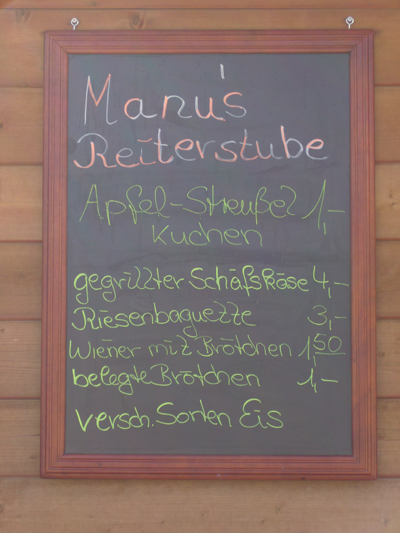 Manu's
Reiterstube
Apfel-Streußel 1,-
Kuchen
gegrillter Schafskäse 4,-
Riesenbaguette 3,-
Wiener mit Brötchen 1,50
belegte Brötchen 1,-
versch. Sorten Eis